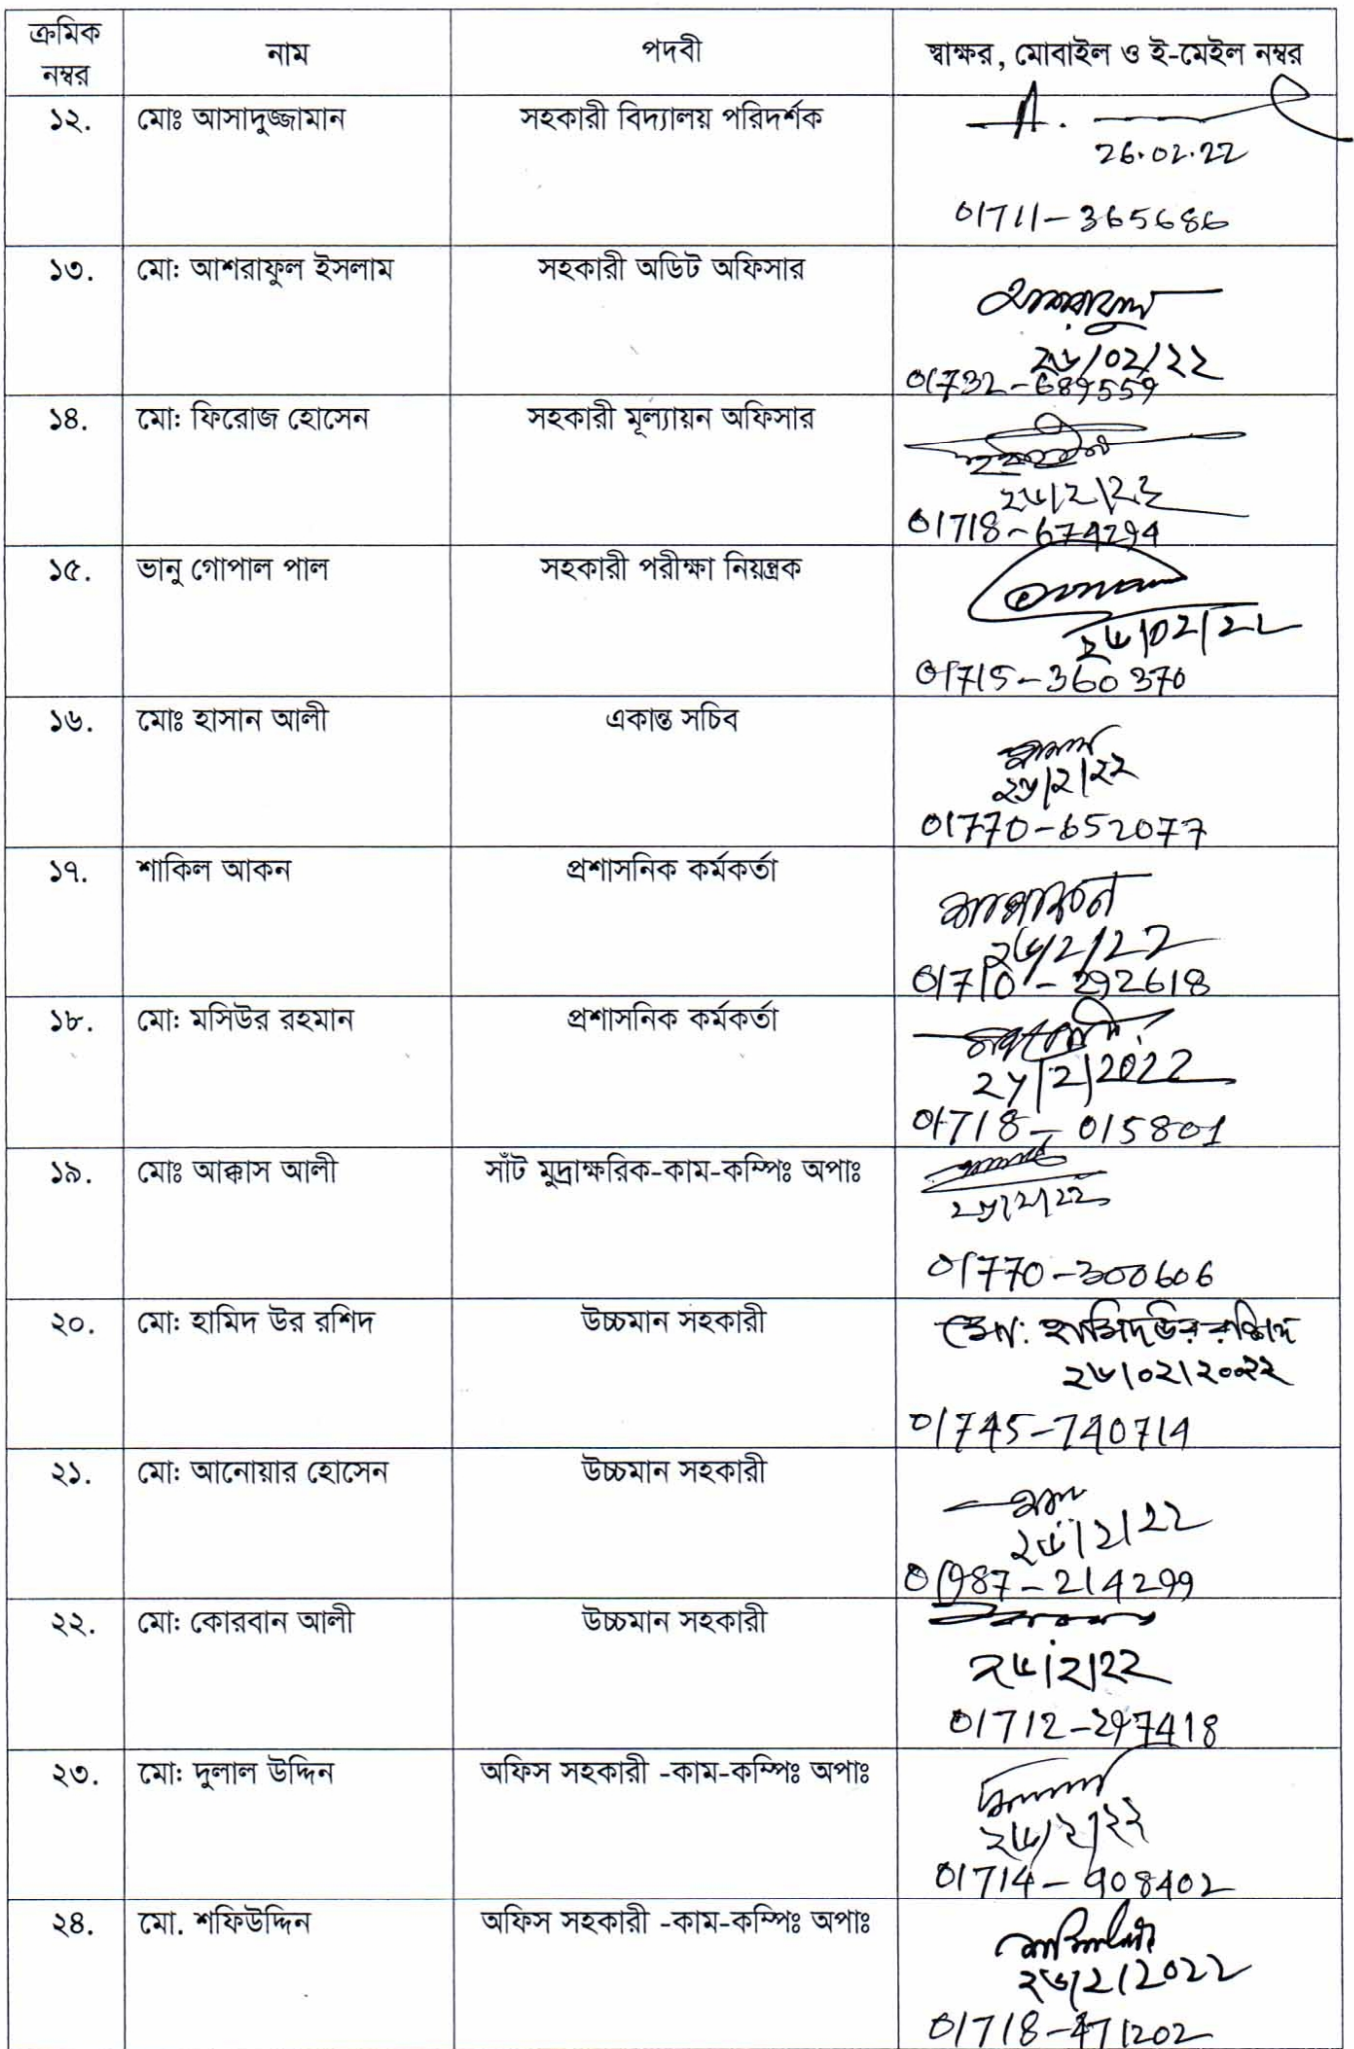 ক্রমিক নম্বর	নাম	পদবী	স্বাক্ষর, মোবাইল ও ই-মেইল নম্বর
১২.	মোঃ আসাদুজ্জামান	সহকারী বিদ্যালয় পরিদর্শক
26.02.22
01711-365686
১৩.	মো: আশরাফুল ইসলাম	সহকারী অডিট অফিসার
আশরাফুল
২৬/০২/২২
01732-689559
১৪.	মো: ফিরোজ হোসেন	সহকারী মূল্যায়ন অফিসার
২৬/2/22
01718-674294
১৫.	ভানু গোপাল পাল	সহকারী পরীক্ষা নিয়ন্ত্রক
২৬/02/22
01715-360370
১৬.	মোঃ হাসান আলী	একান্ত সচিব
২৬/২/২২
01770-652077
১৭.	শাকিল আকন	প্রশাসনিক কর্মকর্তা
২৬/2/22
01710-292618
১৮.	মো: মসিউর রহমান	প্রশাসনিক কর্মকর্তা
২৬/2/2022
01718-015801
১৯.	মোঃ আক্কাস আলী	সাঁট মুদ্রাক্ষরিক-কাম-কম্পিঃ অপাঃ
২৬/2/22
01770-300606
২০.	মো: হামিদ উর রশিদ	উচ্চমান সহকারী
মো: হামিদ উর রশিদ
২৬/০২/২০২২
01745-740714
২১.	মো: আনোয়ার হোসেন	উচ্চমান সহকারী
২৬/2/22
01987-214299
২২.	মো: কোরবান আলী	উচ্চমান সহকারী
২৬/২/২২
01712-297418
২৩.	মো: দুলাল উদ্দিন	অফিস সহকারী -কাম-কম্পিঃ অপাঃ
২৬/২/২২
01714-908402
২৪.	মো. শফিউদ্দিন	অফিস সহকারী -কাম-কম্পিঃ অপাঃ
২৬/2/2022
01718-471202